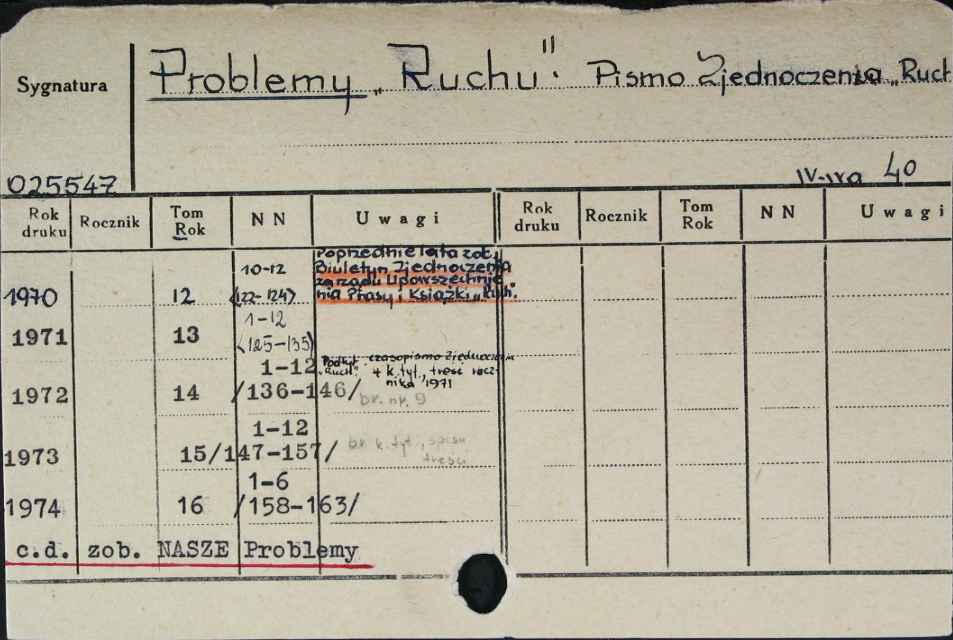 Sygnatura
Problemy „Ruchu". Pismo Zjednoczenia „Ruch
025547
IV-wa 40
Rok druku Rocznik Tom Rok NN Uwagi Rok druku Rocznik Tom Rok NN Uwagi
Poprzednie lata zob.
Biuletyn Zjednoczenia
zarządu Upowszechnie-
nia Prasy i Książki „Ruch".
1970 12 10-12 (122-124)
1971 13 1-12 (125-135)
Podtyt.: czasopismo Zjednoczenia
„Ruch". + k. tyt., treść rocz-
nika 1971
1972 14 1-12 /136-146/ br. nr. 9
1973 15 1-12 /147-157/ br k. tyt., spisu
treści
1974 16 1-6 /158-163/
c.d. zob. NASZE Problemy